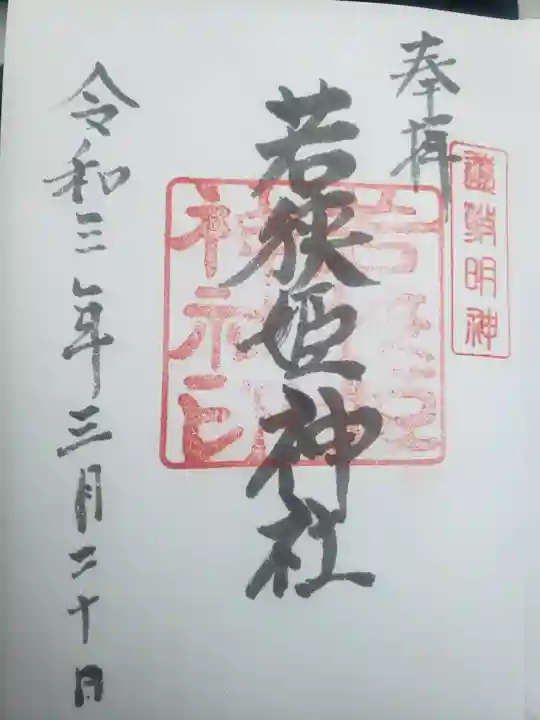 奉拝
遠敷明神
若狭姫神社
令和三年三月二十日